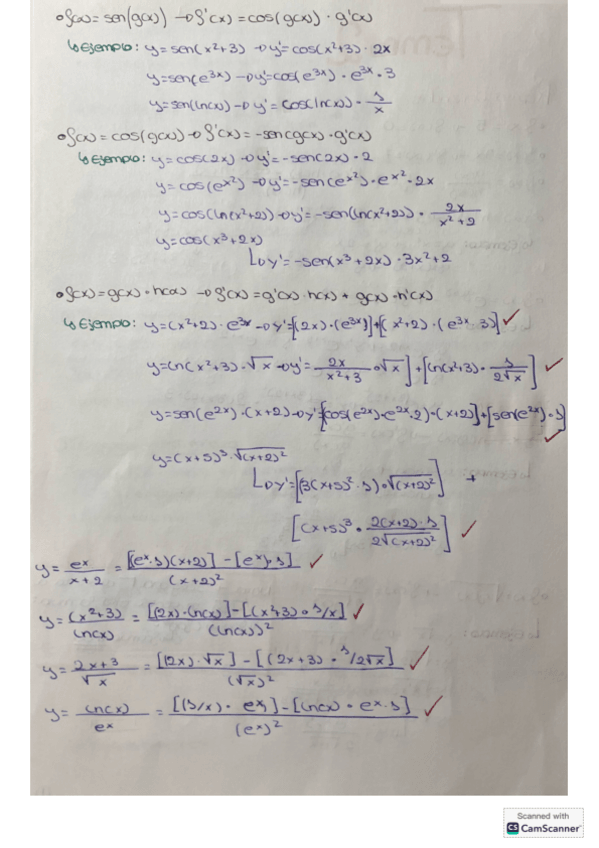 • f(x)= sen(g(x)) → f'(x)= cos(g(x)) · g'(x)
↳ Ejemplo: y= sen(x²+3) → y'= cos(x²+3) · 2x
y= sen(e^3x) → y'= cos(e^3x) · e^3x · 3
y= sen(ln(x)) → y' = cos(ln(x)) · 1/x
• f(x)= cos(g(x)) → f'(x)= -sen(g(x)) · g'(x)
↳ Ejemplo: y= cos(2x) → y'= -sen(2x) · 2
y= cos(e^x²) → y'= -sen(e^x²) · e^x² · 2x
y= cos(ln(x²+2)) → y'= -sen(ln(x²+2)) · 2x/(x²+2)
y= cos(x³+2x)
↳ y'= -sen(x³+2x) · 3x²+2
• f(x)= g(x) · h(x) → f'(x)= g'(x) · h(x) + g(x) · h'(x)
↳ Ejemplo: y= (x²+2) · e^3x → y'= [(2x) · (e^3x)] + [(x²+2) · (e^3x · 3)] ✓
y= ln(x²+3) · √x → y'= 2x/(x²+3) · √x] + [ln(x²+3) · 1/(2√x)] ✓
y= sen(e^2x) · (x+2) → y'= [cos(e^2x) · e^2x · 2) · (x+2)] + [sen(e^2x) · 1] ✓
y= (x+5)³ · √(x+2)²
↳ y'= [(3(x+5)² · 1) · √(x+2)²] +
[(x+5)³ · 2(x+2) · 1/(2√(x+2)²)] ✓
y= e^x/(x+2) = [(e^x · 1)(x+2)] - [(e^x) · 1]/(x+2)² ✓
y= (x²+3)/ln(x) = [(2x) · ln(x)] - [(x²+3) · 1/x]/(ln(x))² ✓
y= 2x+3/√x = [(2x) · √x] - [(2x+3) · 1/2√x]/(√x)² ✓
y= ln(x)/e^x = [(1/x) · e^x] - [ln(x) · e^x · 1]/(e^x)² ✓
Scanned with
CS CamScanner